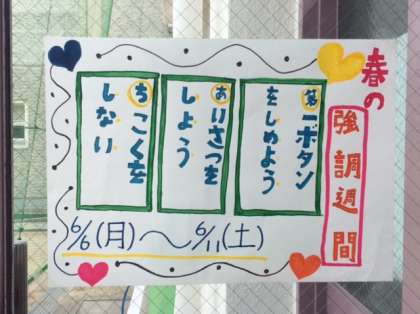 春の
強調週間
第一ボタン
をしめよう
あいさつを
しよう
ちこくを
しない
6/6(月)〜6/11(土)